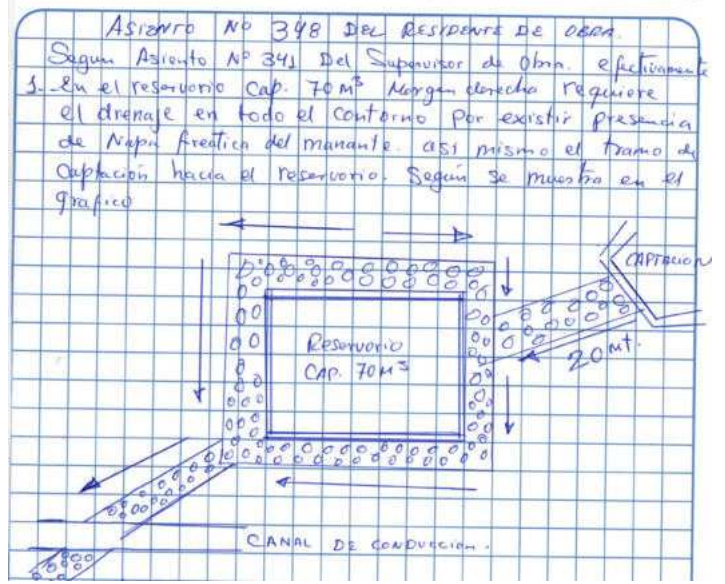 ASIENTO Nº 348 DEL RESIDENTE DE OBRA.
Segun Asiento Nº 341 Del Supervisor de Obra. efectivamente
1.- En el reservorio Cap. 70 M³ Margen derecha requiere
el drenaje en todo el contorno por existir presencia
de Napa freatica del manante. asi mismo el tramo de
Captación hacia el reservorio. Según se muestra en el
grafico
CAPTACION
Reservorio
CAP. 70 M³
20 mt.
CANAL DE CONDUCCION.